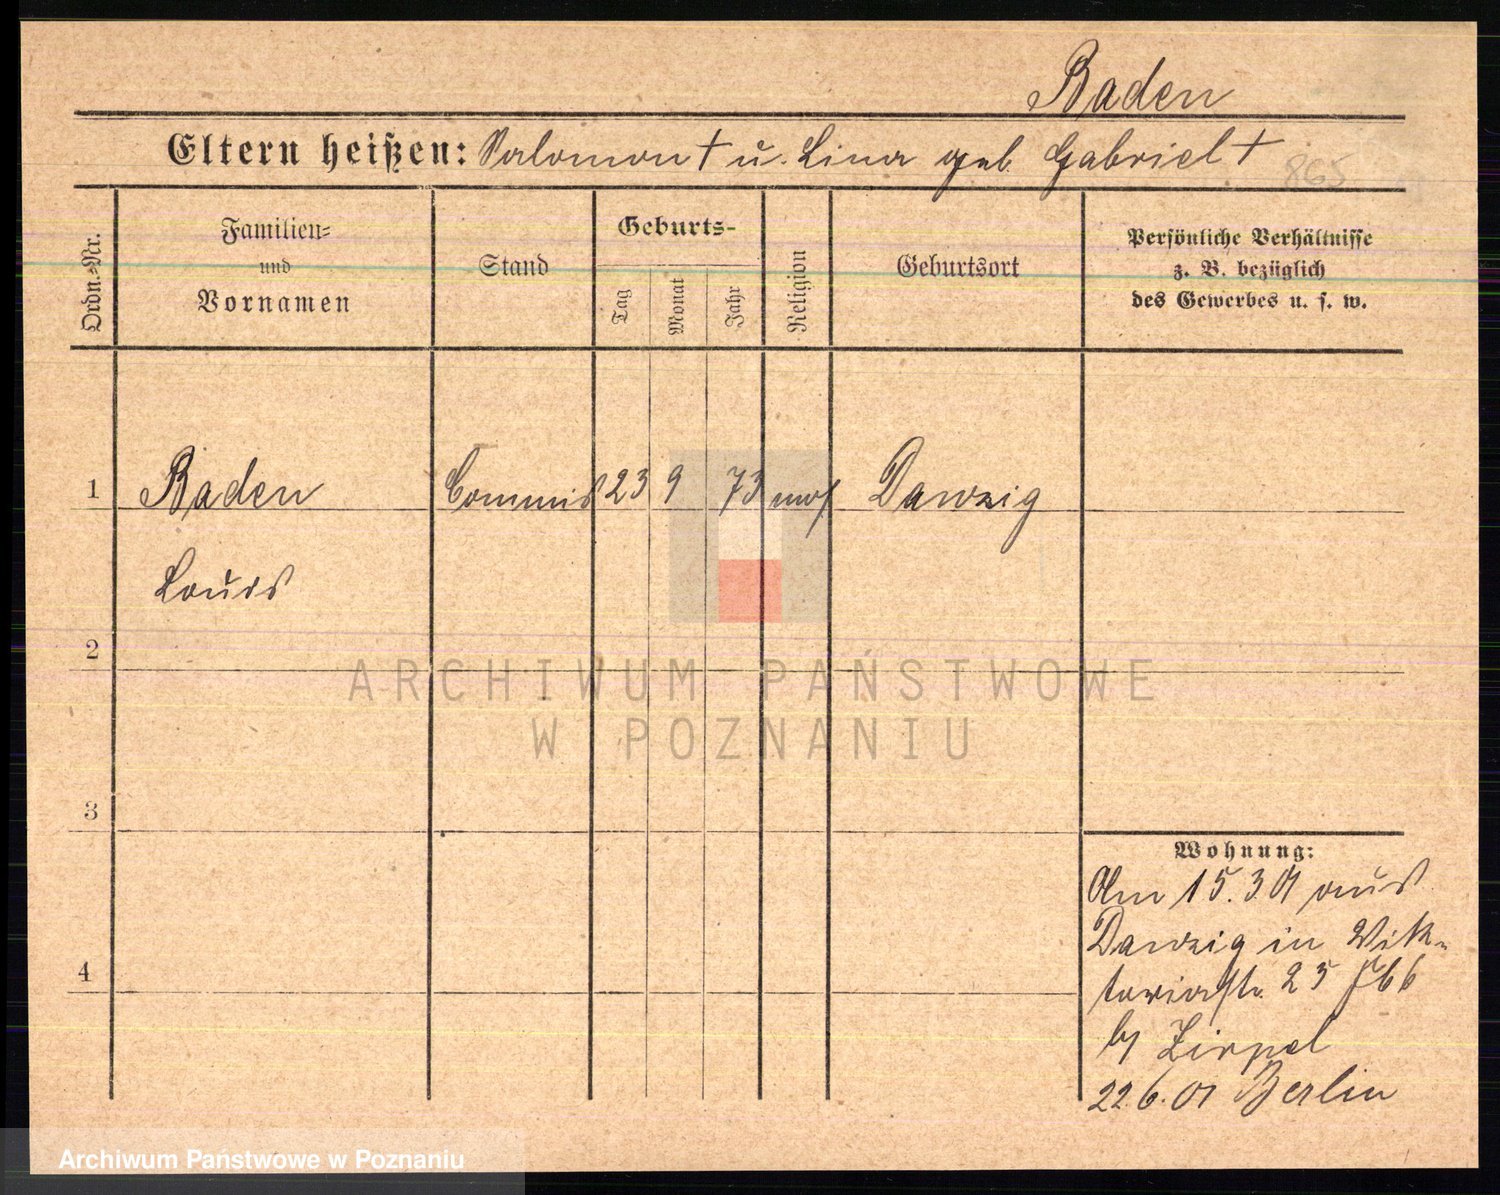 Baden
Eltern heißen: Salomon † u. Lina geb. Gabriel †
865
Ordn.-Nr.
Familien- und Vornamen
Stand
Geburts-
Tag
Monat
Jahr
Religion
Geburtsort
Persönliche Verhältnisse
z. B. bezüglich
des Gewerbes u. s. w.
1 Baden Commis 23 9 73 mos Danzig
Louis
2
ARCHIWUM PAŃSTWOWE
W POZNANIU
3
Wohnung:
Am 15.3.01 aus
Danzig in Vik-
4
toriastr. 25
b/ Zirpel
22.6.01 Berlin
Archiwum Państwowe w Poznaniu